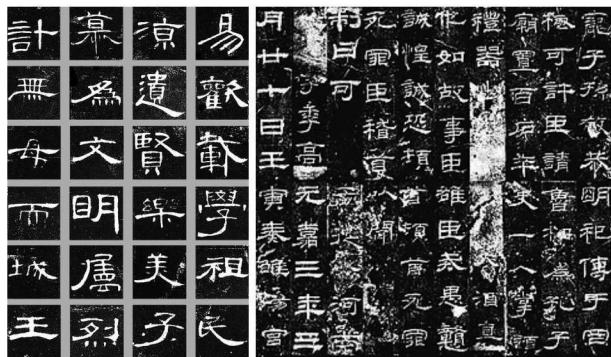 易歡載學祖民
涼遺賢樂美子
慕為文明屬烈
計無母而城王
寵子孫敬恭明祀傳于罔
極可許臣請魯相為孔子
廟置百石卒史一人掌領
禮器 酒直
他如故事臣雄臣戒愚戇
誠惶誠恐頓首頓首死罪
死罪臣稽首以聞
制曰可 公河南
字季高元嘉三年三
月廿七日壬寅奏雒陽宮